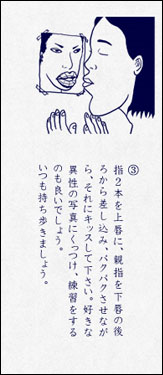 ③
指2本を上唇に、親指を下唇の後
ろから差し込み、パクパクさせなが
ら、それにキッスして下さい。好きな
異性の写真にくっつけ、練習をする
のも良いでしょう。
いつも持ち歩きましょう。